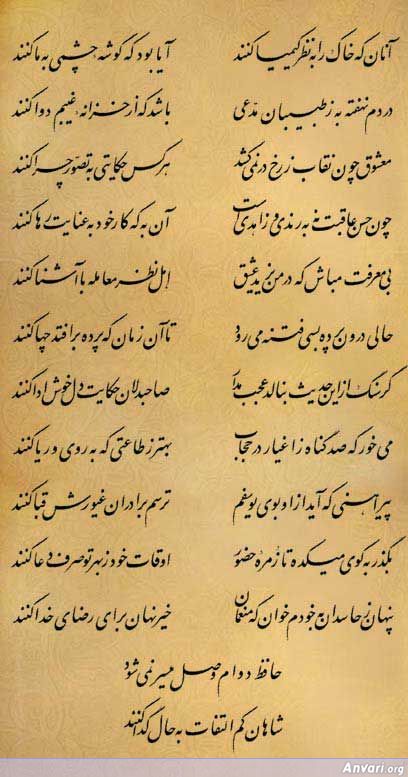 آنان که خاک را به نظر کیمیا کنند آیا بود که گوشه چشمی به ما کنند
دردم نهفته به ز طبیبان مدعی باشد که از خزانه غیبم دوا کنند
معشوق چون نقاب ز رخ در نمی‌کشد هر کس حکایتی به تصور چرا کنند
چون حسن عاقبت نه به رندی و زاهدیست آن به که کار خود به عنایت رها کنند
بی معرفت مباش که در من یزید عشق اهل نظر معامله با آشنا کنند
حالی درون پرده بسی فتنه می‌رود تا آن زمان که پرده برافتد چها کنند
گر سنگ از این حدیث بنالد عجب مدار صاحبدلان حکایت دل خوش ادا کنند
می خور که صد گناه ز اغیار در حجاب بهتر ز طاعتی که به روی و ریا کنند
پیراهنی که آید از او بوی یوسفم ترسم برادران غیورش قبا کنند
بگذر به کوی میکده تا زمره حضور اوقات خود ز بهر تو صرف دعا کنند
پنهان ز حاسدان به خودم خوان که منعمان خیر نهان برای رضای خدا کنند
حافظ دوام وصل میسر نمی‌شود
شاهان کم التفات به حال گدا کنند
Anvari.org